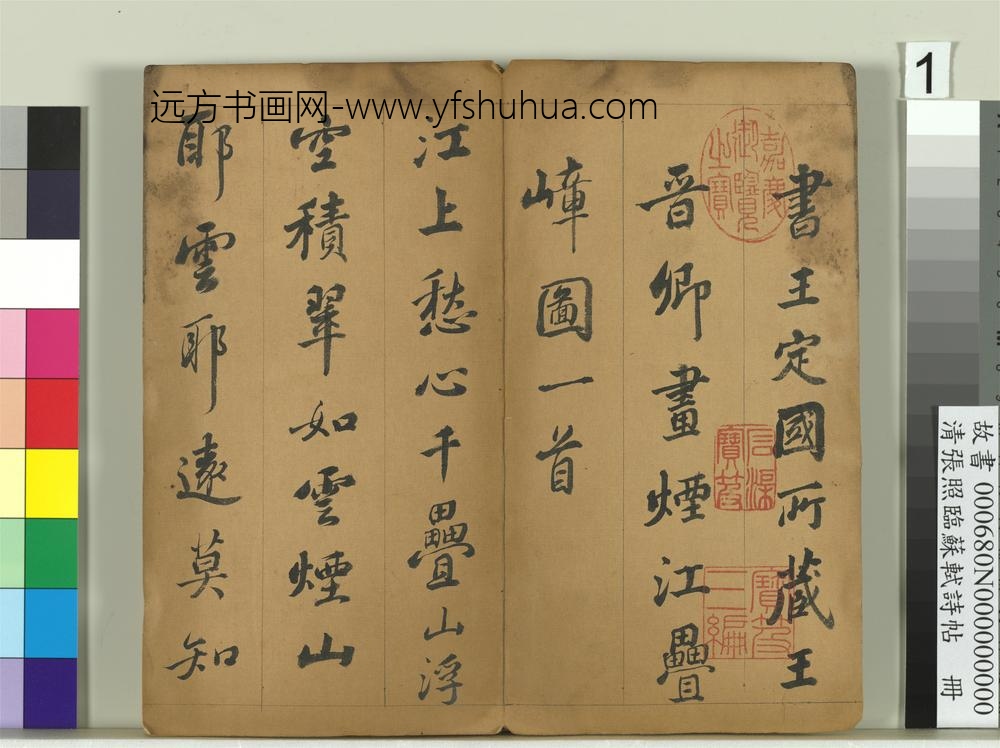 远方书画网-www.yfshuhua.com
1
書王定國所藏王
晋卿畫煙江疊
嶂圖一首
江上愁心千疊山浮
空積翠如雲煙山
耶雲耶遠莫知
嘉慶御覽之寶
石渠寶笈
寶笈三編
故書 000680N000000000
清張照臨蘇軾詩帖 冊